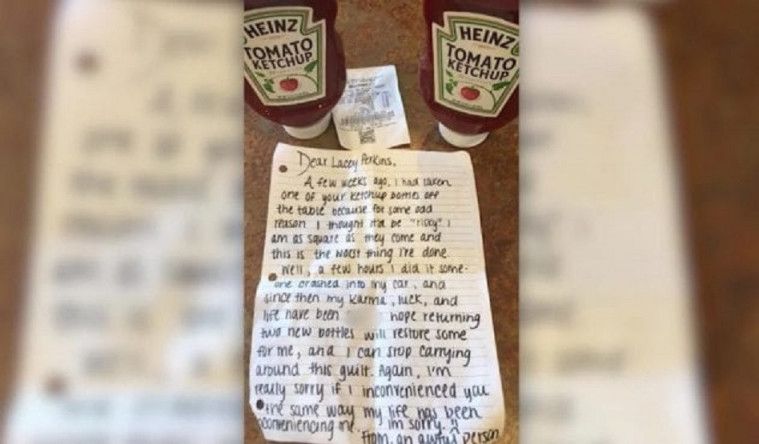 HEINZ
TOMATO
KETCHUP
HEINZ
TOMATO
KETCHUP
Dear Lacey Perkins,
A few weeks ago, I had taken
one of your ketchup bottles off
the table because for some odd
reason I thought it'd be "risky" I
am as square as they come and
this is the worst thing I've done.
Well, a few hours I did it some-
one crashed into my car, and
since then my karma, luck, and
life have been hope returning
two new bottles will restore some
for me, and I can stop carrying
around this guilt. Again, I'm
really sorry if I inconvenienced you
the same way my life has been
inconveniencing me. I'm sorry. :(
From, an awful person